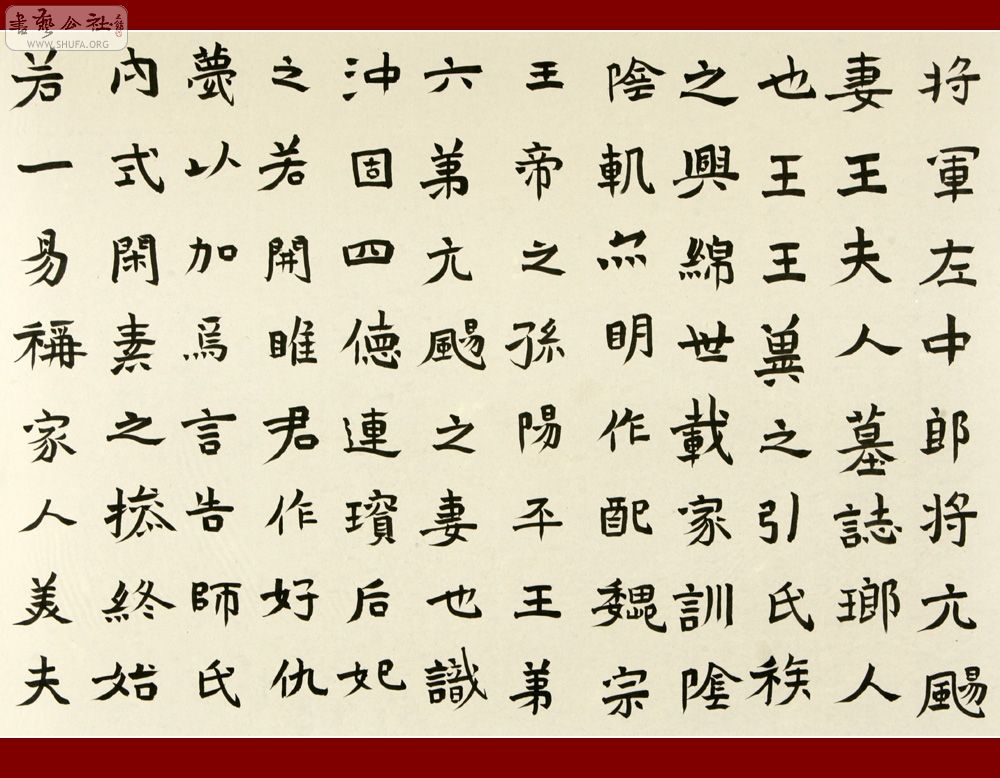 書藝公社
WWW.SHUFA.ORG
将軍左中郎将元颺
妻王夫人墓誌瑯人
也王王巽之引氏族
之興綿世載家訓陰
陰軌無明作配魏宗
王帝之孫陽平王第
六第元颺之妻也識
沖固四德連璸后妃
之若開雎君作好仇
夢以加焉言告師氏
内式閑素之操終始
若一易稱家人美夫